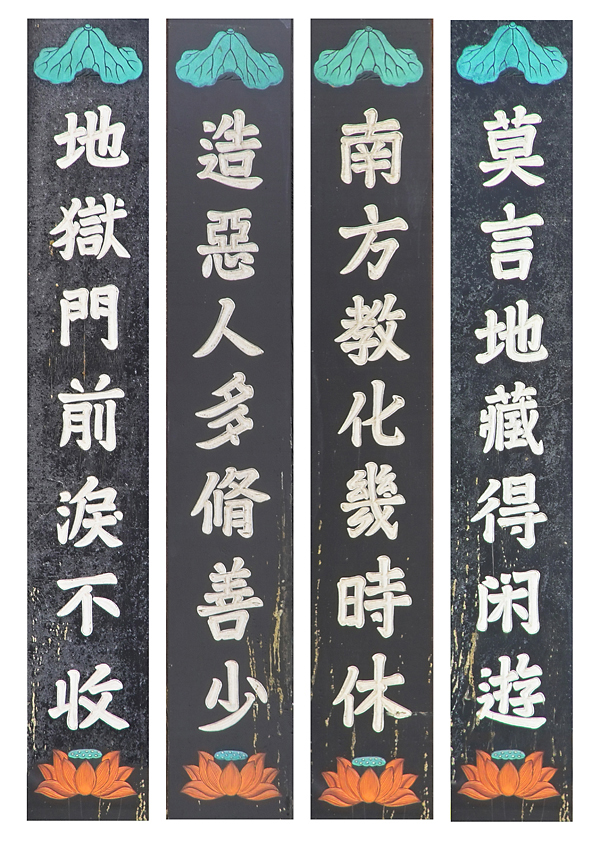 莫言地藏得閑遊
南方教化幾時休
造惡人多脩善少
地獄門前淚不收